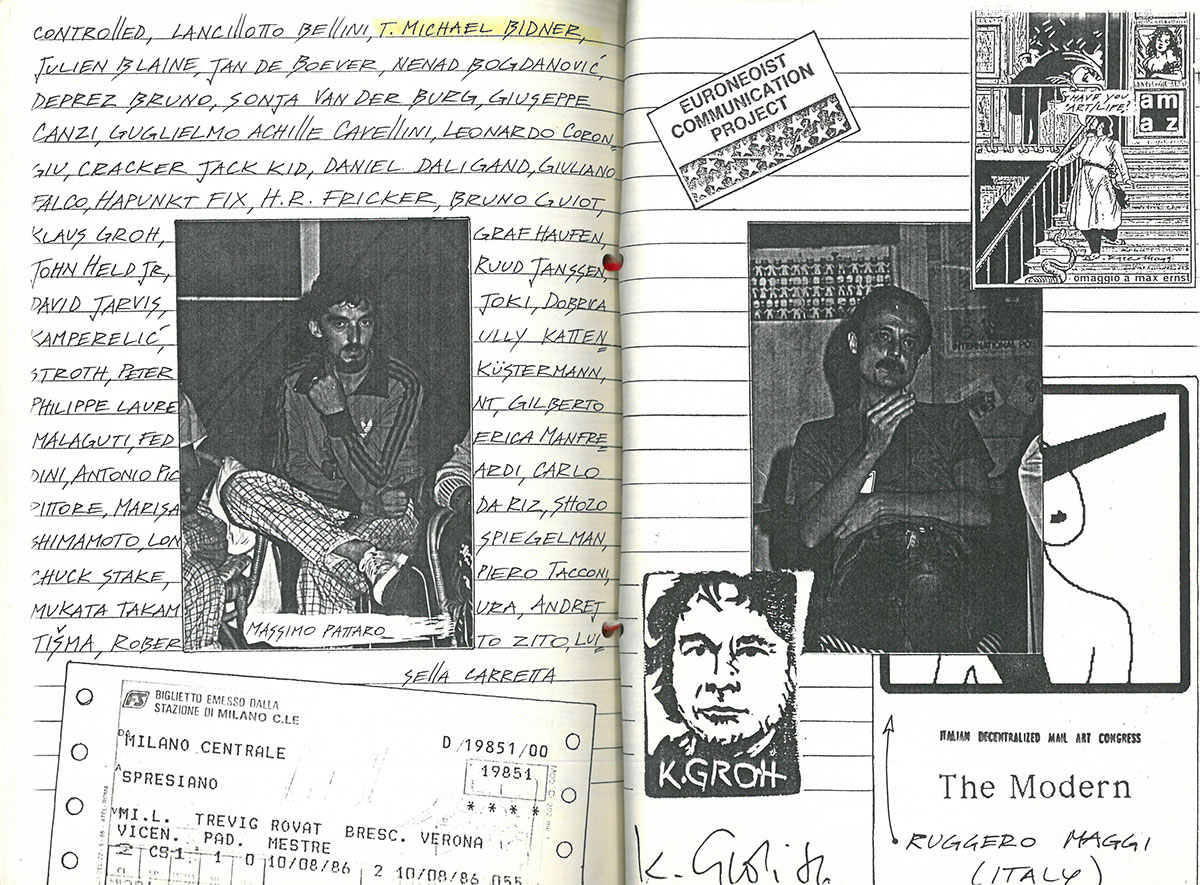 CONTROllED, LANCIllOTTO BEllINI, T. MICHAEL BIDNER,
JULIEN BLAINE, JAN DE BOEVER, NENAD BOGDANOVIĆ,
DEPREZ BRUNO, SONJA VAN DER BURG, GIUSEPPE
CANZI, GUGLIELMO ACHIllE CAVEllINI, LEONARDO CORON=
GIU, CRACKER JACK KID, DANIEL DALIGAND, GIULIANO
FALCO, HAPUNKT FIX, H.R. FRICKER, BRUNO GUIOT,
KLAUS GROH, GRAF HAUFEN,
JOHN HELD JR, RUUD JANSSEN,
DAVID JARVIS, JOKI, DOBRICA
KAMPERELIĆ, ULLY KATTEN=
STROTH, PETER KÜSTERMANN,
PHILIPPE LAURENT, GILBERTO
MALAGUTI, FEDERICA MANFRE=
DINI, ANTONIO PICARDI, CARLO
PITTORE, MARISA DA RIZ, SHOZO
SHIMAMOTO, LON SPIEGELMAN,
CHUCK STAKE, PIERO TACCONI,
MUKATA TAKAMURA, ANDREJ
TIŠMA, ROBERTO ZITO, LUI=
SELLA CARRETTA
MASSIMO PATTARO
FS BIGLIETTO EMESSO DALLA
STAZIONE DI MILANO C.LE
DA MILANO CENTRALE
D /19851/00
19851
A SPRESIANO
* * * *
MI.L. TREVIG ROVAT BRESC. VERONA
VICEN. PAD. MESTRE
CS1 1 0 10/08/86 2 10/08/86 055
EURONEOIST
COMMUNICATION
PROJECT
HAVE YOU
ART/LIFE?
am
az
omaggio a max ernst
INTERNATIONAL
K.GROH
ITALIAN DECENTRALIZED MAIL ART CONGRESS
The Modern
RUGGERO MAGGI
(ITALY)